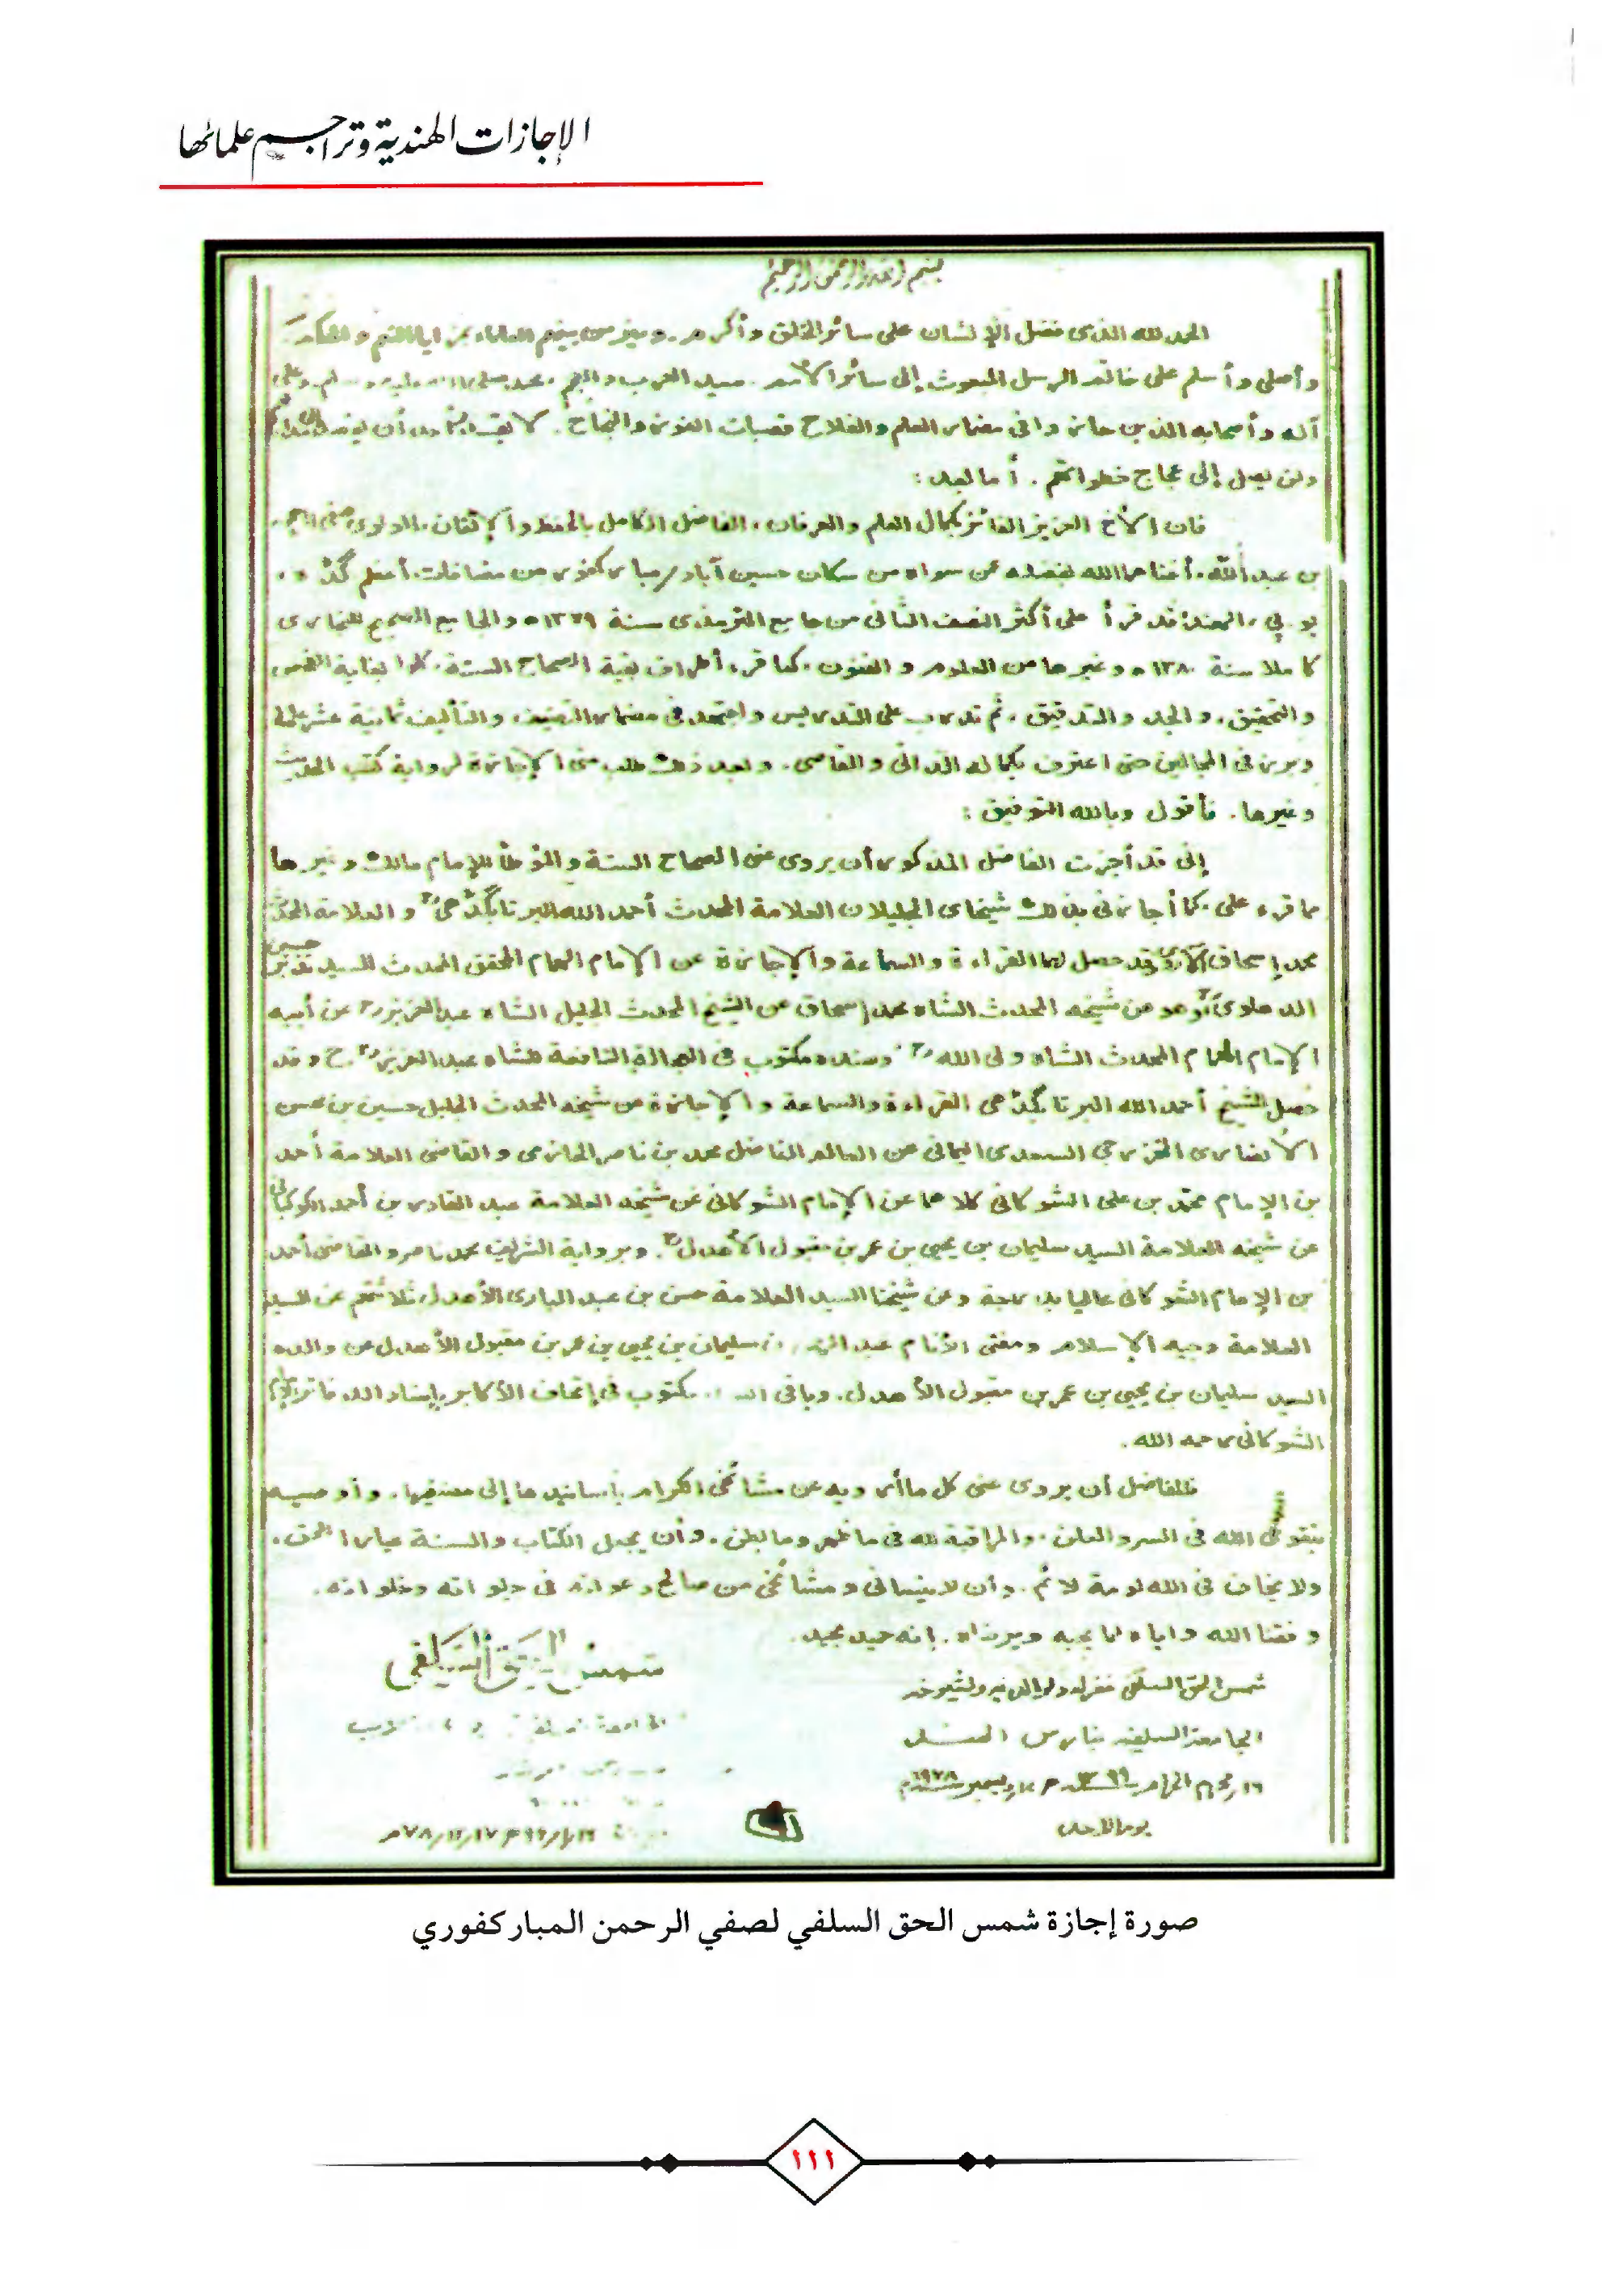 الإجازات الهندية وتراجم علمائها
بسم الله الرحمن الرحيم
الحمد لله الذى فضل الإنسان على سائر الخلق وأكرم، وميز من بينهم العلماء بمزايا
وأصلى وأسلم على خاتم الرسل المبعوث إلى سائر الأمم، سيد العرب والعجم، محمد صلى الله عليه وسلم، وعلى
آله وأصحابه الذين حازوا فى مضمار العلم والفلاح قصبات الفوز والنجاح.
ولن يصل إلى عجاج خطواتهم. أما بعد:
فان الأخ العزيز الفائز بكمال العلم والعرفان، الفاضل الكامل بالحفظ والإتقان، المولوى صفى الرحمن
بن عبد الله، أغناهما الله بفضله عمن سواه من سكان حسين آباد مباركفور من مضافات أعظم كڈه،
يو. پي، الهند: قد قرأ على أكثر النصف الثانى من جامع الترمذى سنة ١٣٧٩ه والجامع الصحيح للبخارى
كاملا سنة ١٣٨٠ه وغيرها من العلوم والفنون، كما قرء أطراف بقية الصحاح الستة، كلها بغاية الفحص
والتحقيق، والجد والتدقيق، ثم تدرب على التدريس واجتهد فى مضمار التصنيف والتأليف ثمانية عشر عاما
وبرز فى المجالين حتى اعترف بكماله الدانى والقاصى. وبعد ذلك طلب منى الإجازة لرواية كتب الحديث
وغيرها. فأقول وبالله التوفيق:
إنى قد أجزت الفاضل المذكور أن يروى عنى الصحاح الستة والمؤطأ للإمام مالك وغيرها
مما قرء على، كما أجازنى بذلك شيخاى الجليلان العلامة المحدث أحمد الله البرتابگڈهى والعلامة المحدث
محمد إسحاق الآروى قد حصل لهما القراءة والسماعة والإجازة عن الإمام الهمام المحقق المحدث السيد نذير حسين
الدهلوى وهو من شيخه المحدث الشاه محمد إسحاق عن الشيخ المحدث الجليل الشاه عبد العزيز عن أبيه
الإمام الهمام المحدث الشاه ولى الله وسنده مكتوب فى العجالة النافعة للشاه عبد العزيز ح وقد
حصل الشيخ أحمد الله البرتابگڈهى القراءة والسماعة والإجازة من شيخه المحدث الجليل حسين بن محسن
الأنصارى الخزرجي السعدى اليمانى عن العالم الفاضل محمد بن ناصر الحازمى والقاضى العلامة أحمد
بن الإمام محمد بن على الشوكانى كلاهما عن الإمام الشوكانى عن شيخه العلامة عبد القادر بن أحمد الكوكبانى
عن شيخه العلامة السيد سليمان بن يحيى بن عمر بن مقبول الأهدل. وبرواية الشريف محمد ناصر والقاضى أحمد
بن الإمام الشوكانى عاليا بدرجة وعن شيخنا السيد العلامة حسن بن عبد البارى الأهدل ثلاثتهم عن السيد
العلامة وجيه الإسلام ومفتى الأنام عبد الرحمن بن سليمان بن يحيى بن عمر بن مقبول الأهدل عن والده
السيد سليمان بن يحيى بن عمر بن مقبول الأهدل. وباقى السند مكتوب فى إتحاف الأكابر بإسناد الدفاتر للإمام
الشوكانى رحمه الله.
فللفاضل أن يروى عنى كل ما أرويه عن مشائخى الكرام بأسانيدها إلى مصنفيها. وأوصيه
بتقوى الله فى السر والعلن، والمراقبة لله فى ما ظهر وما بطن، وأن يجعل الكتاب والسنة عيار الحق،
ولا يخاف فى الله لومة لائم. وأن لا ينسانى ومشائخى من صالح دعواته فى جلواته وخلواته.
وفقنا الله وإياه لما يحبه ويرضاه، إنه حميد مجيد.
شمس الحق السلفى
شمس الحق السلفى غفر له ولوالديه ولشيوخه
الجامعة السلفية بنارس الهند
١٦ محرم الحرام ١٣٩٩ه ١٧ ديسمبر ١٩٧٨م
يوم الأحد
٧٨/١٢/١٧م
صورة إجازة شمس الحق السلفي لصفي الرحمن المباركفوري
١١١